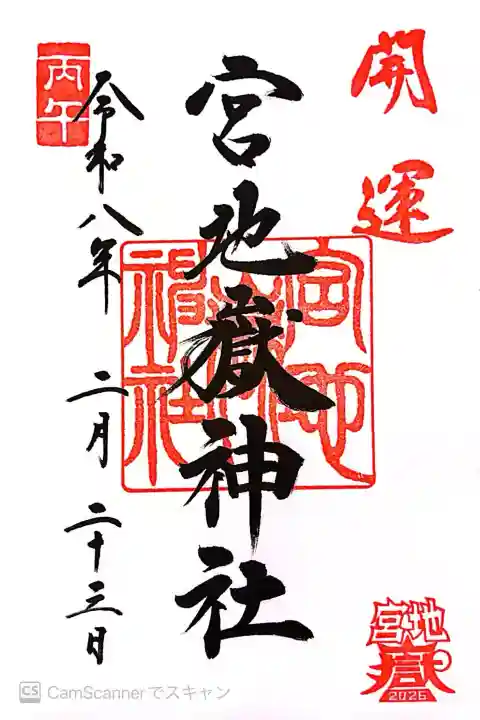 開運
宮地嶽神社
宮地嶽神社
丙午
令和八年 二月 二十三日
宮地
嶽
2026
CS CamScannerでスキャン